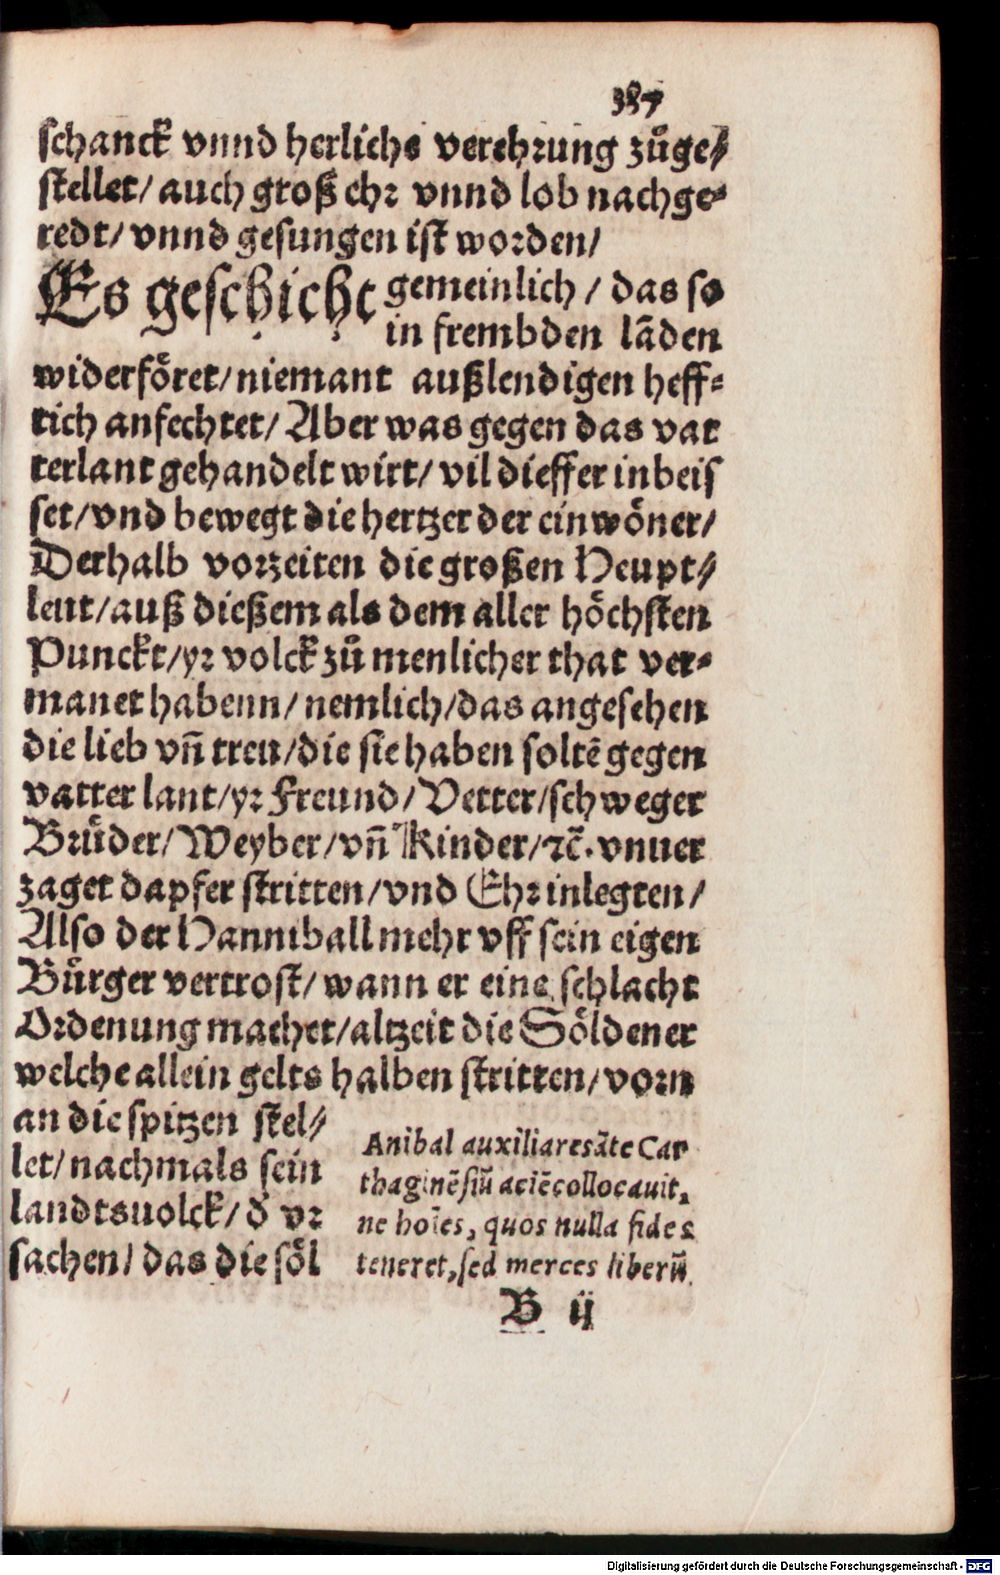 387
schanck vnnd herlichs verehrung zůge⸗
stellet/ auch groß ehr vnnd lob nachge⸗
redt/ vnnd gesungen ist worden/
Es geschicht gemeinlich / das so
in frembden lāden
widerföret/ niemant außlendigen heff⸗
tich anfechtet/ Aber was gegen das vat
terlant gehandelt wirt/ vil dieffer inbeis
set/ vnd bewegt die hertzer der einwöner/
Derhalb vorzeiten die großen Heupt⸗
leut/ auß dießem als dem aller höchsten
Punckt/ yr volck zů menlicher that ver⸗
manet habenn/ nemlich/ das angesehen
die lieb vñ treu/ die sie haben soltē gegen
vatter lant/ yr Freund/ Vetter/ schweger
Brůder/ Weyber/ vñ Kinder/ ⁊c̄. vnuer
zaget dapfer stritten/ vnd Ehr inlegten/
Also der Hanniball mehr vff sein eigen
Bürger vertrost/ wann er eine schlacht
Ordenung machet/ altzeit die Söldener
welche allein gelts halben stritten/ vorn
an die spitzen stel⸗
let/ nachmals sein
landtsuolck/ d̄ vr
sachen/ das die söl
Anibal auxiliares āte Car
thaginēsiū aciē collocavit,
ne hoīes, quos nulla fides
teneret, sed merces liberū
B ij
Digitalisierung gefördert durch die Deutsche Forschungsgemeinschaft - DFG